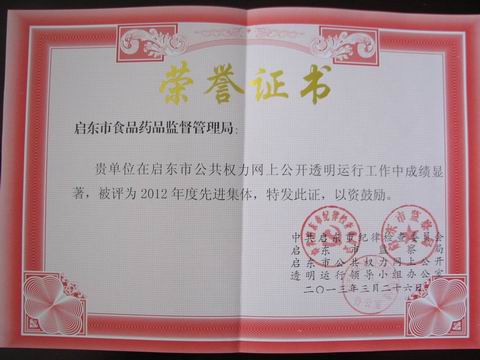 荣誉证书
启东市食品药品监督管理局：
贵单位在启东市公共权力网上公开透明运行工作中成绩显
著，被评为2012年度先进集体，特发此证，以资鼓励。
中共启东市纪律检查委员会
启东市监察局
启东市公共权力网上公开
透明运行领导小组办公室
二〇一三年三月二十六日